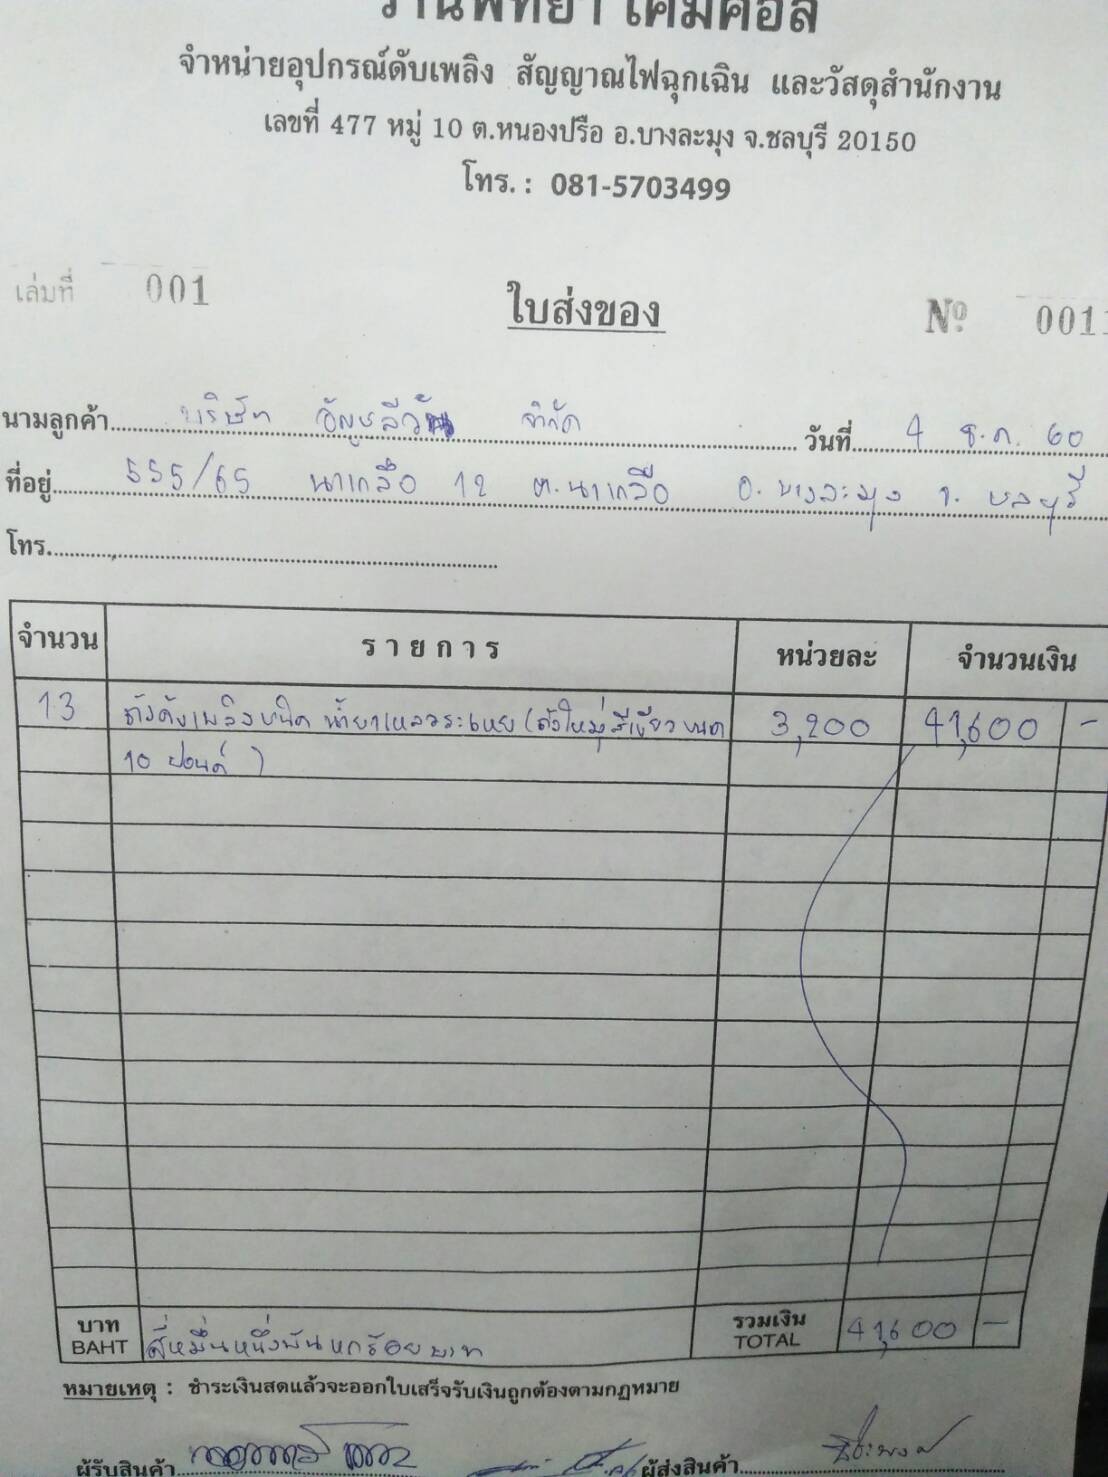 ร้านพัทยา เคมีคอล
จำหน่ายอุปกรณ์ดับเพลิง สัญญาณไฟฉุกเฉิน และวัสดุสำนักงาน
เลขที่ 477 หมู่ 10 ต.หนองปรือ อ.บางละมุง จ.ชลบุรี 20150
โทร. : 081-5703499
เล่มที่ 001 ใบส่งของ Nº 0011
นามลูกค้า บริษัท อัญชลีวัน จำกัด วันที่ 4 ธ.ค. 60
ที่อยู่ 555/65 นาเกลือ 12 ต.นาเกลือ อ. บางละมุง จ. ชลบุรี
โทร.
จำนวน รายการ หน่วยละ จำนวนเงิน
13 ถังดับเพลิงชนิด น้ำยาเหลวระเหย (ถังใหม่สีเขียวขนาด 3,200 41,600 -
10 ปอนด์ )
บาท รวมเงิน
BAHT สี่หมื่นหนึ่งพันหกร้อยบาท TOTAL 41,600 -
หมายเหตุ : ชำระเงินสดแล้วจะออกใบเสร็จรับเงินถูกต้องตามกฎหมาย
ผู้รับสินค้า ผู้ส่งสินค้า